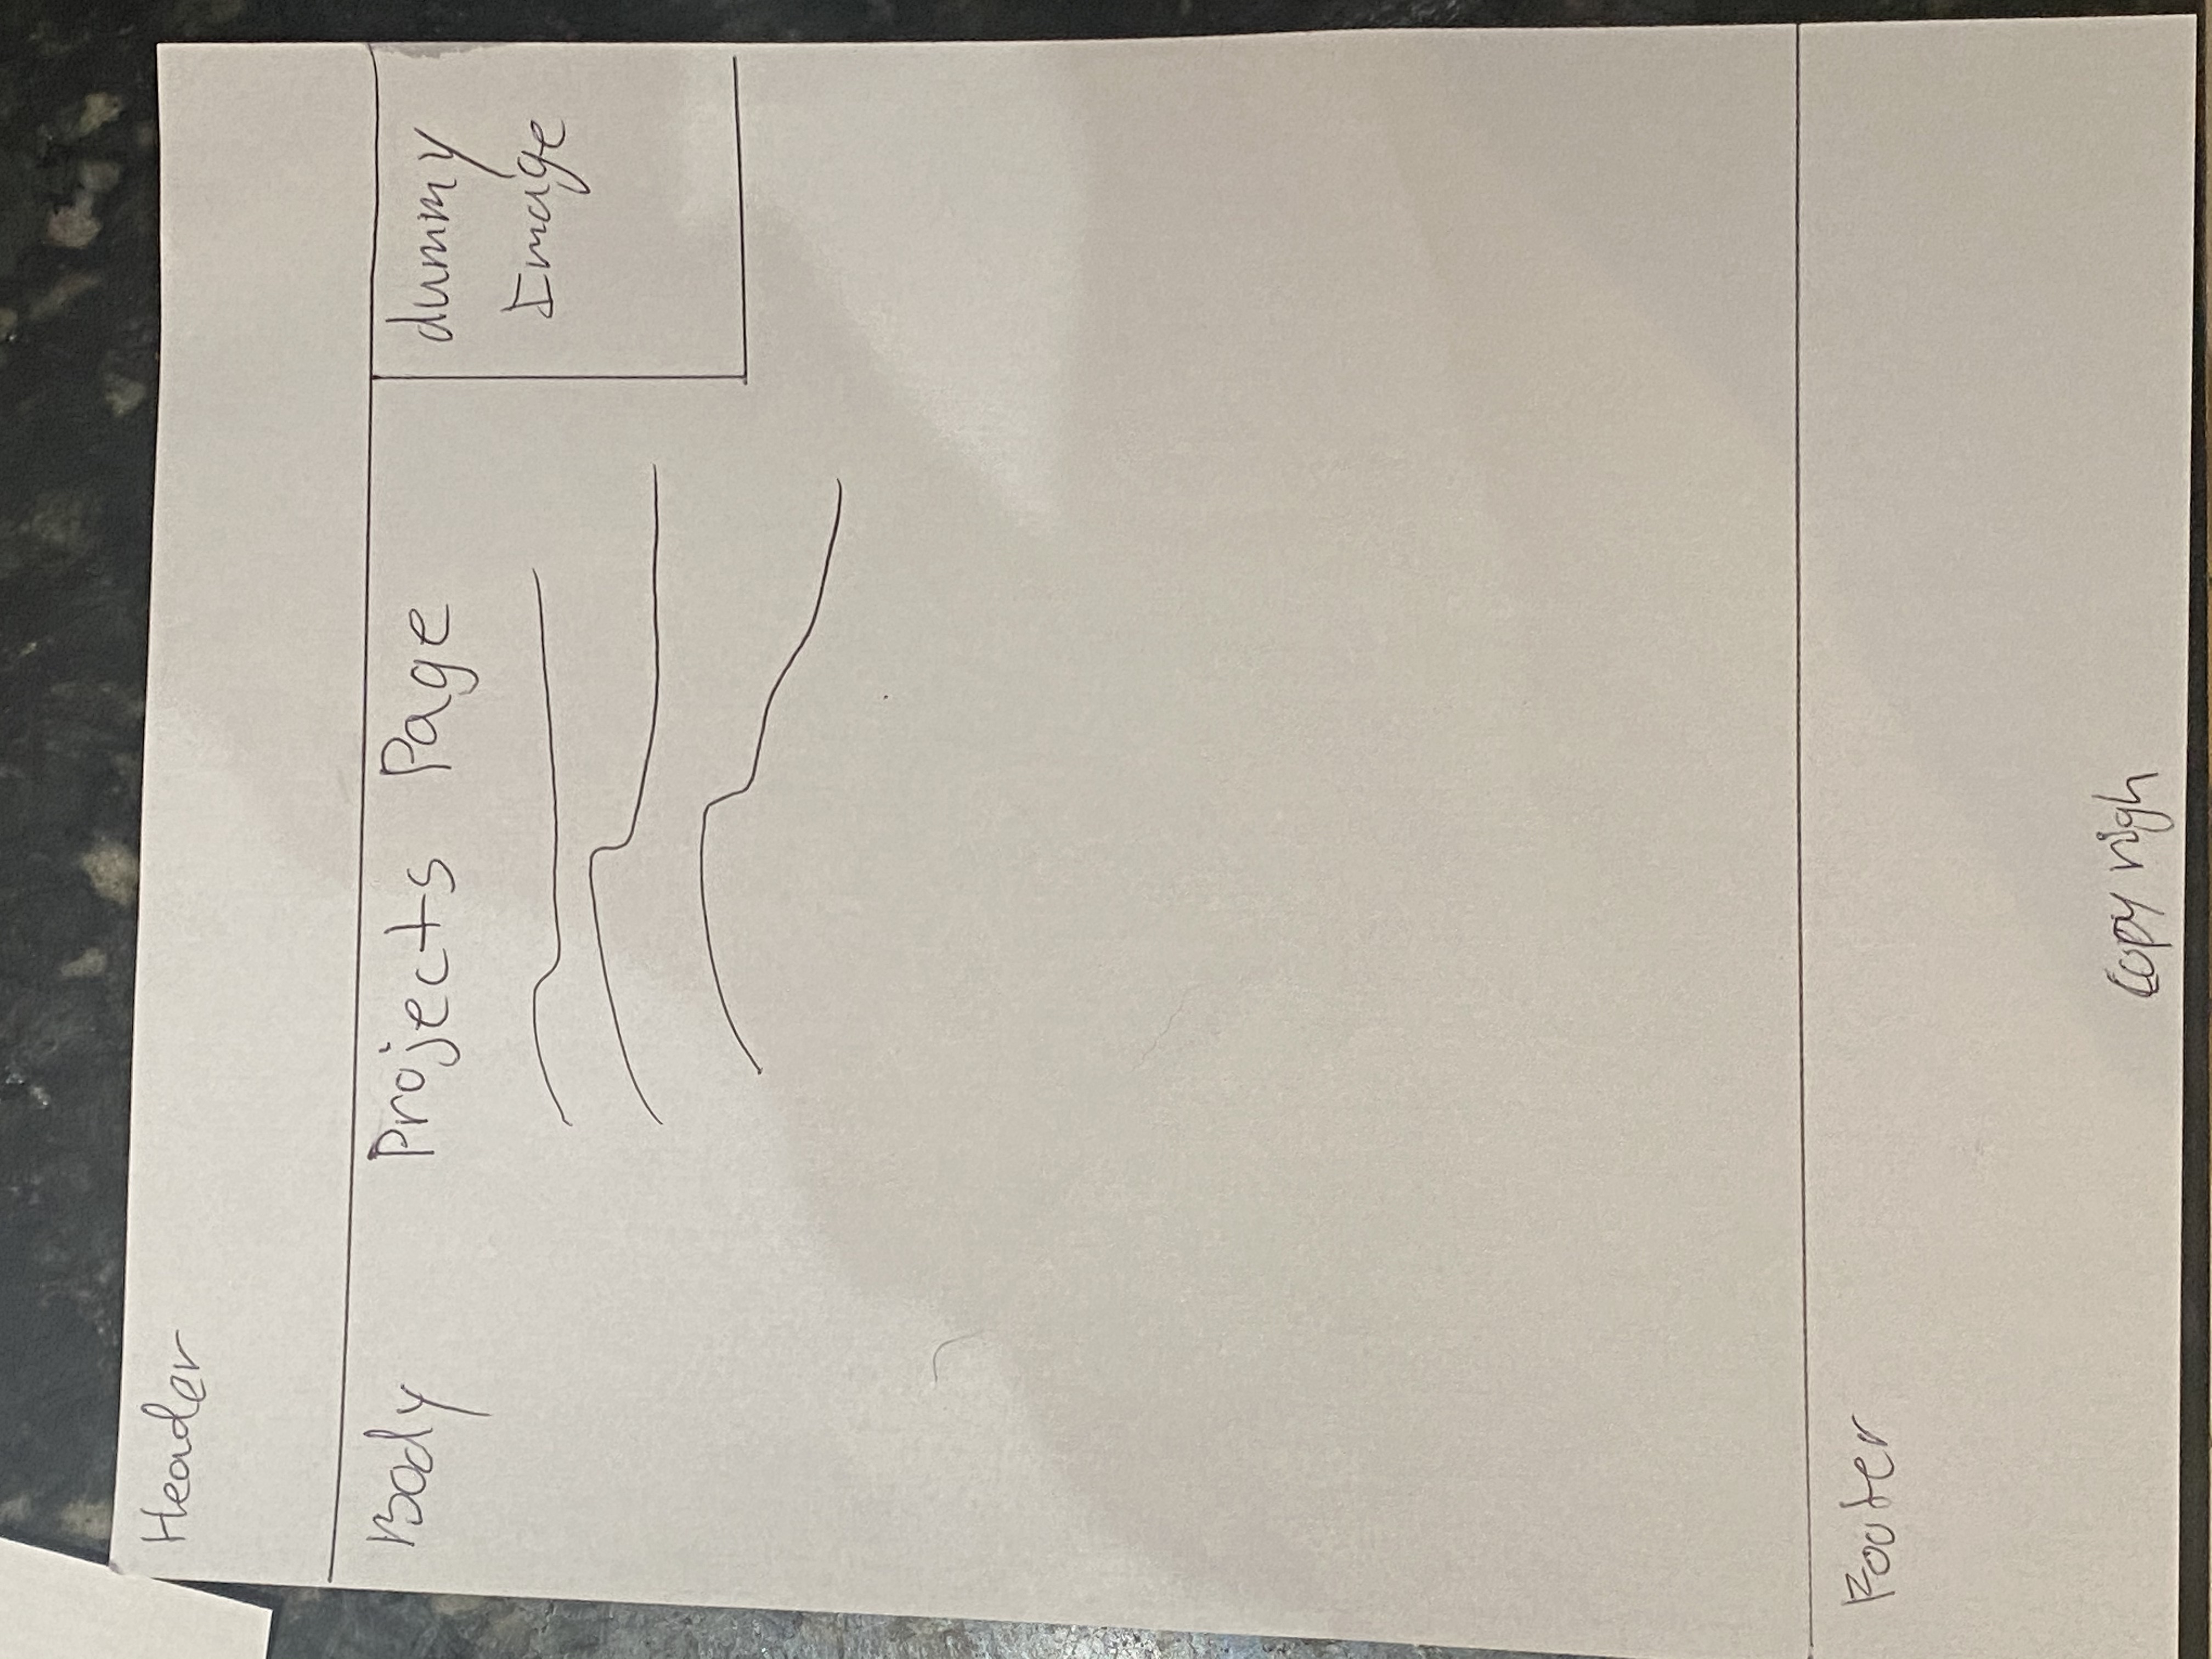 Header
Body Projects Page dummy
Image
Footer
copy righ